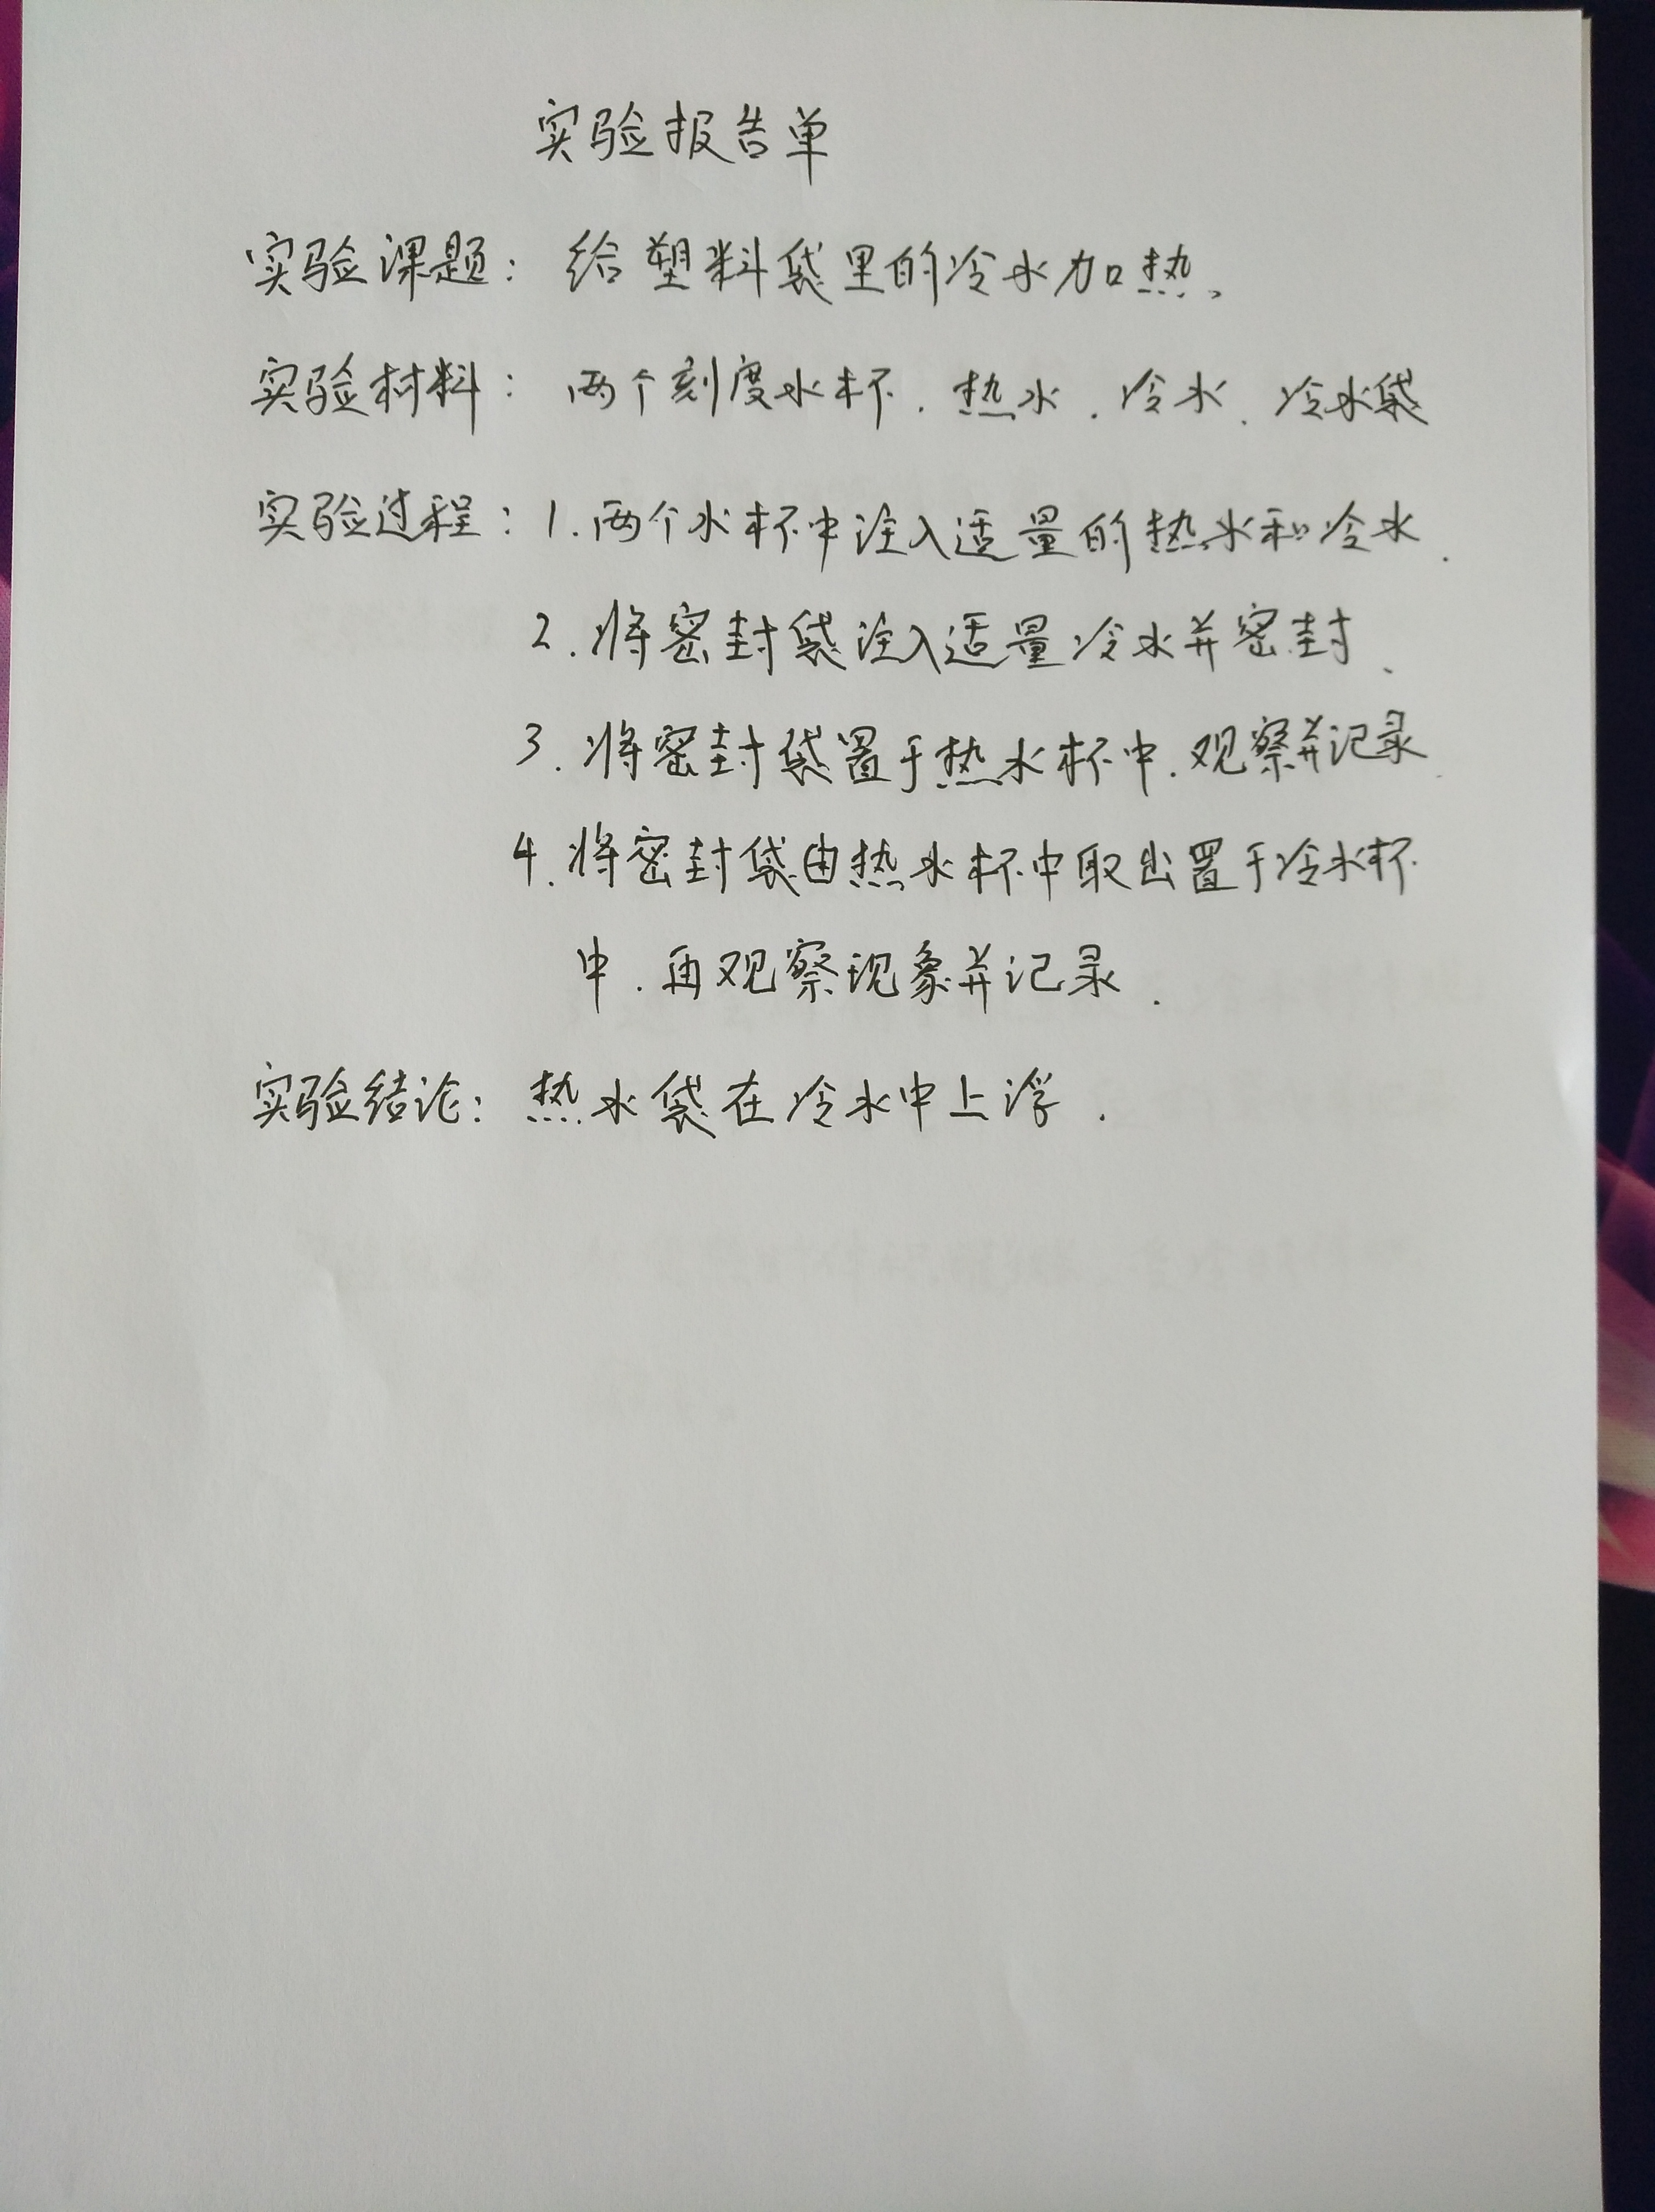 实验报告单
实验课题：给塑料袋里的冷水加热、
实验材料：两个刻度水杯.热水.冷水.冷水袋
实验过程：1.两个水杯中注入适量的热水和冷水.
2.将密封袋注入适量冷水并密封、
3.将密封袋置于热水杯中.观察并记录.
4.将密封袋由热水杯中取出置于冷水杯
中.再观察现象并记录.
实验结论：热水袋在冷水中上浮.